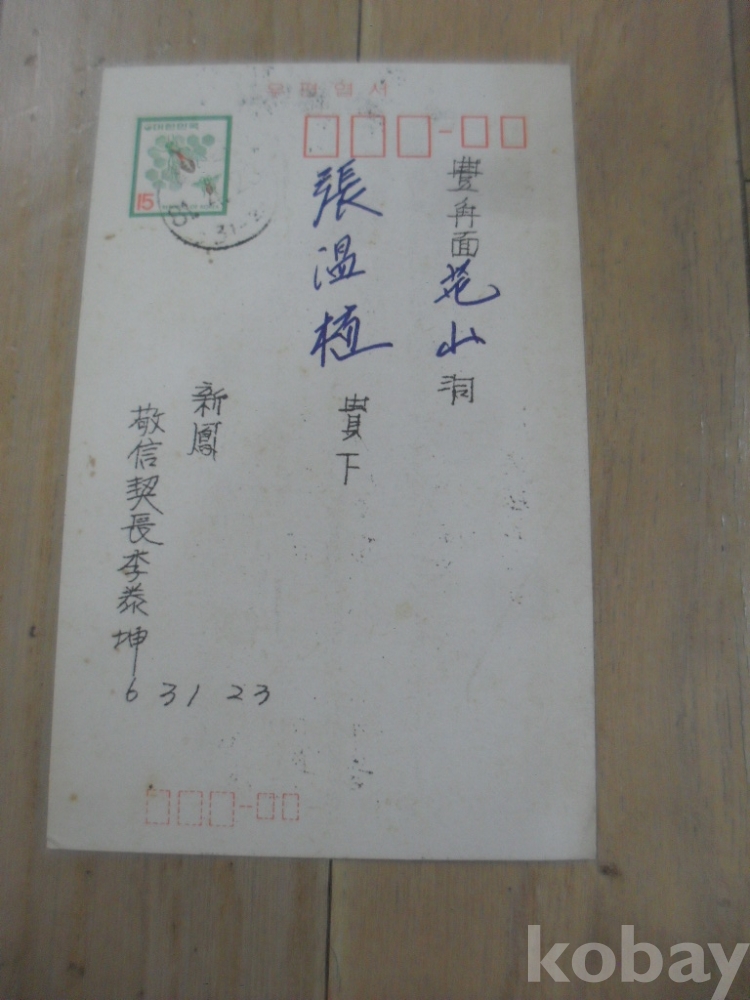 우편엽서
대한민국
15
豊角面 芚山 洞
張溫植
貴下
新鳳
敬信契長李泰坤
6 31 23
kobay